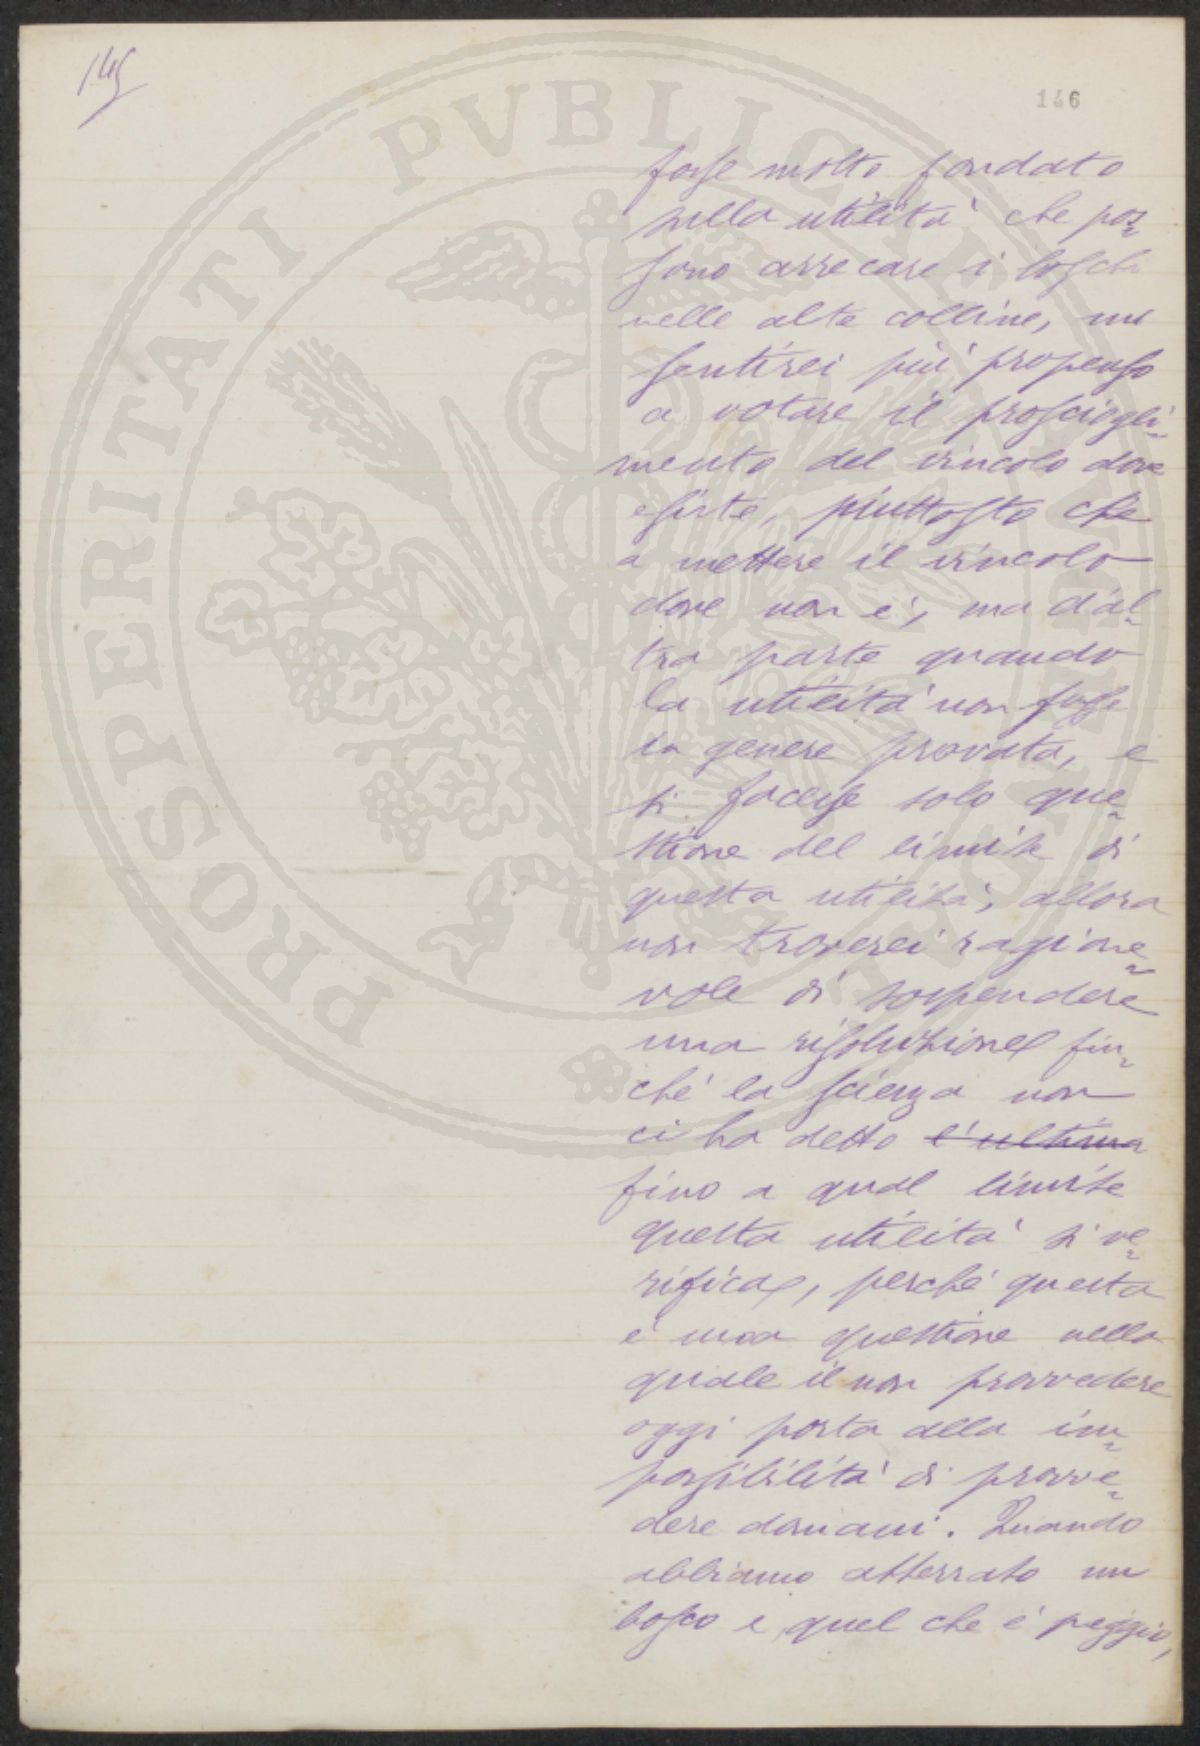 145
146
fosse molto fondato
sulla utilità che pos=
sono arrecare i boschi
nelle alte colline, mi
sentirei più propenso
a votare il prosciogli=
mento del vincolo dove
esiste, piuttosto che
a mettere il vincolo
dove non è, ma d'al=
tra parte quando
la utilità non fosse
in genere provata, e
si facesse solo que=
stione del limite di
questa utilità, allora
non troverei ragione=
vole di sospendere
una risoluzione fin=
ché la scienza non
ci ha detto l'ultima
fino a qual limite
questa utilità si ve=
rifica, perché questa
è una questione nella
quale il non provvedere
oggi porta alla im=
possibilità di provve=
dere domani. Quando
abbiamo atterrato un
bosco e quel che è peggio,
PROSPERITATI PVBLICAE